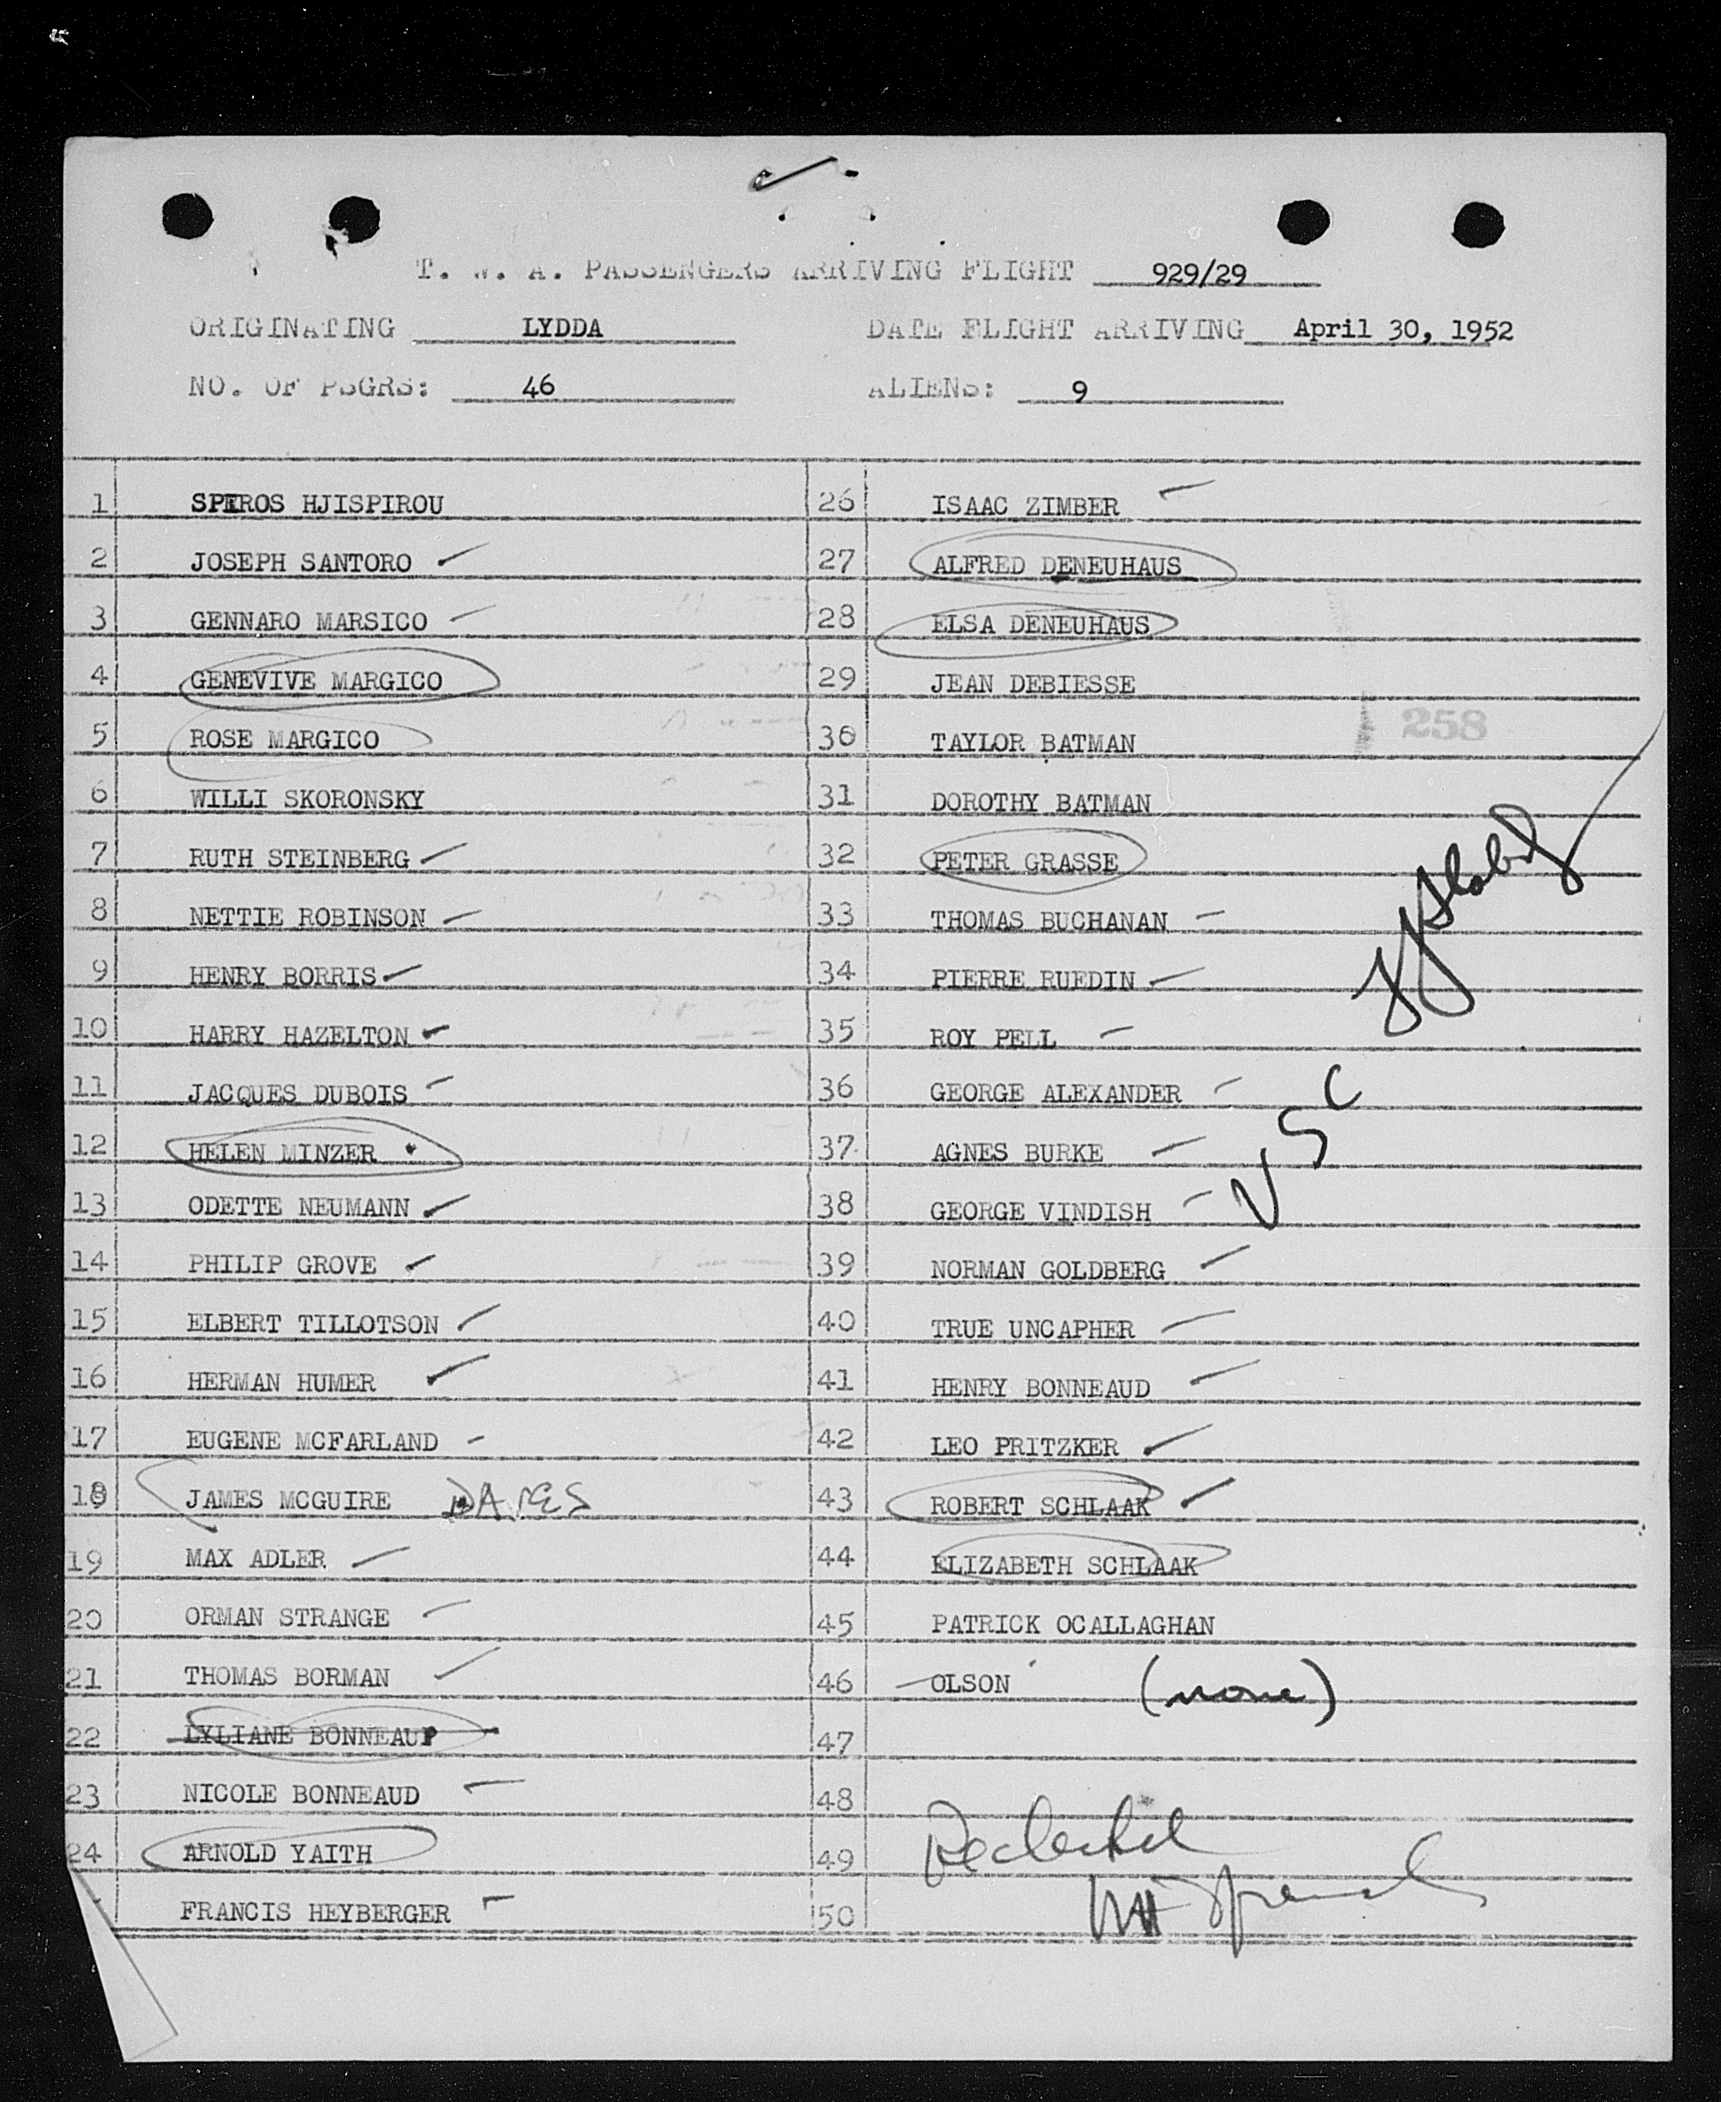 T. W. A. PASSENGERS ARRIVING FLIGHT 929/29
ORIGINATING LYDDA DATE FLIGHT ARRIVING April 30, 1952
NO. OF PSGRS: 46 ALIENS: 9
1 SPEROS HJISPIROU
2 JOSEPH SANTORO
3 GENNARO MARSICO
4 GENEVIVE MARGICO
5 ROSE MARGICO
6 WILLI SKORONSKY
7 RUTH STEINBERG
8 NETTIE ROBINSON
9 HENRY BORRIS
10 HARRY HAZELTON
11 JACQUES DUBOIS
12 HELEN MINZER
13 ODETTE NEUMANN
14 PHILIP GROVE
15 ELBERT TILLOTSON
16 HERMAN HUMER
17 EUGENE MCFARLAND
18 JAMES MCGUIRE
19 MAX ADLER
20 ORMAN STRANGE
21 THOMAS BORMAN
22 LYLIANE BONNEAUD
23 NICOLE BONNEAUD
24 ARNOLD YAITH
FRANCIS HEYBERGER
26 ISAAC ZIMBER
27 ALFRED DENEUHAUS
28 ELSA DENEUHAUS
29 JEAN DEBIESSE
30 TAYLOR BATMAN
31 DOROTHY BATMAN
32 PETER GRASSE
33 THOMAS BUCHANAN
34 PIERRE RUEDIN
35 ROY PELL
36 GEORGE ALEXANDER
37 AGNES BURKE
38 GEORGE VINDISH
39 NORMAN GOLDBERG
40 TRUE UNCAPHER
41 HENRY BONNEAUD
42 LEO PRITZKER
43 ROBERT SCHLAAK
44 ELIZABETH SCHLAAK
45 PATRICK OCALLAGHAN
46 OLSON (none)
47
48
49
50
258
USC